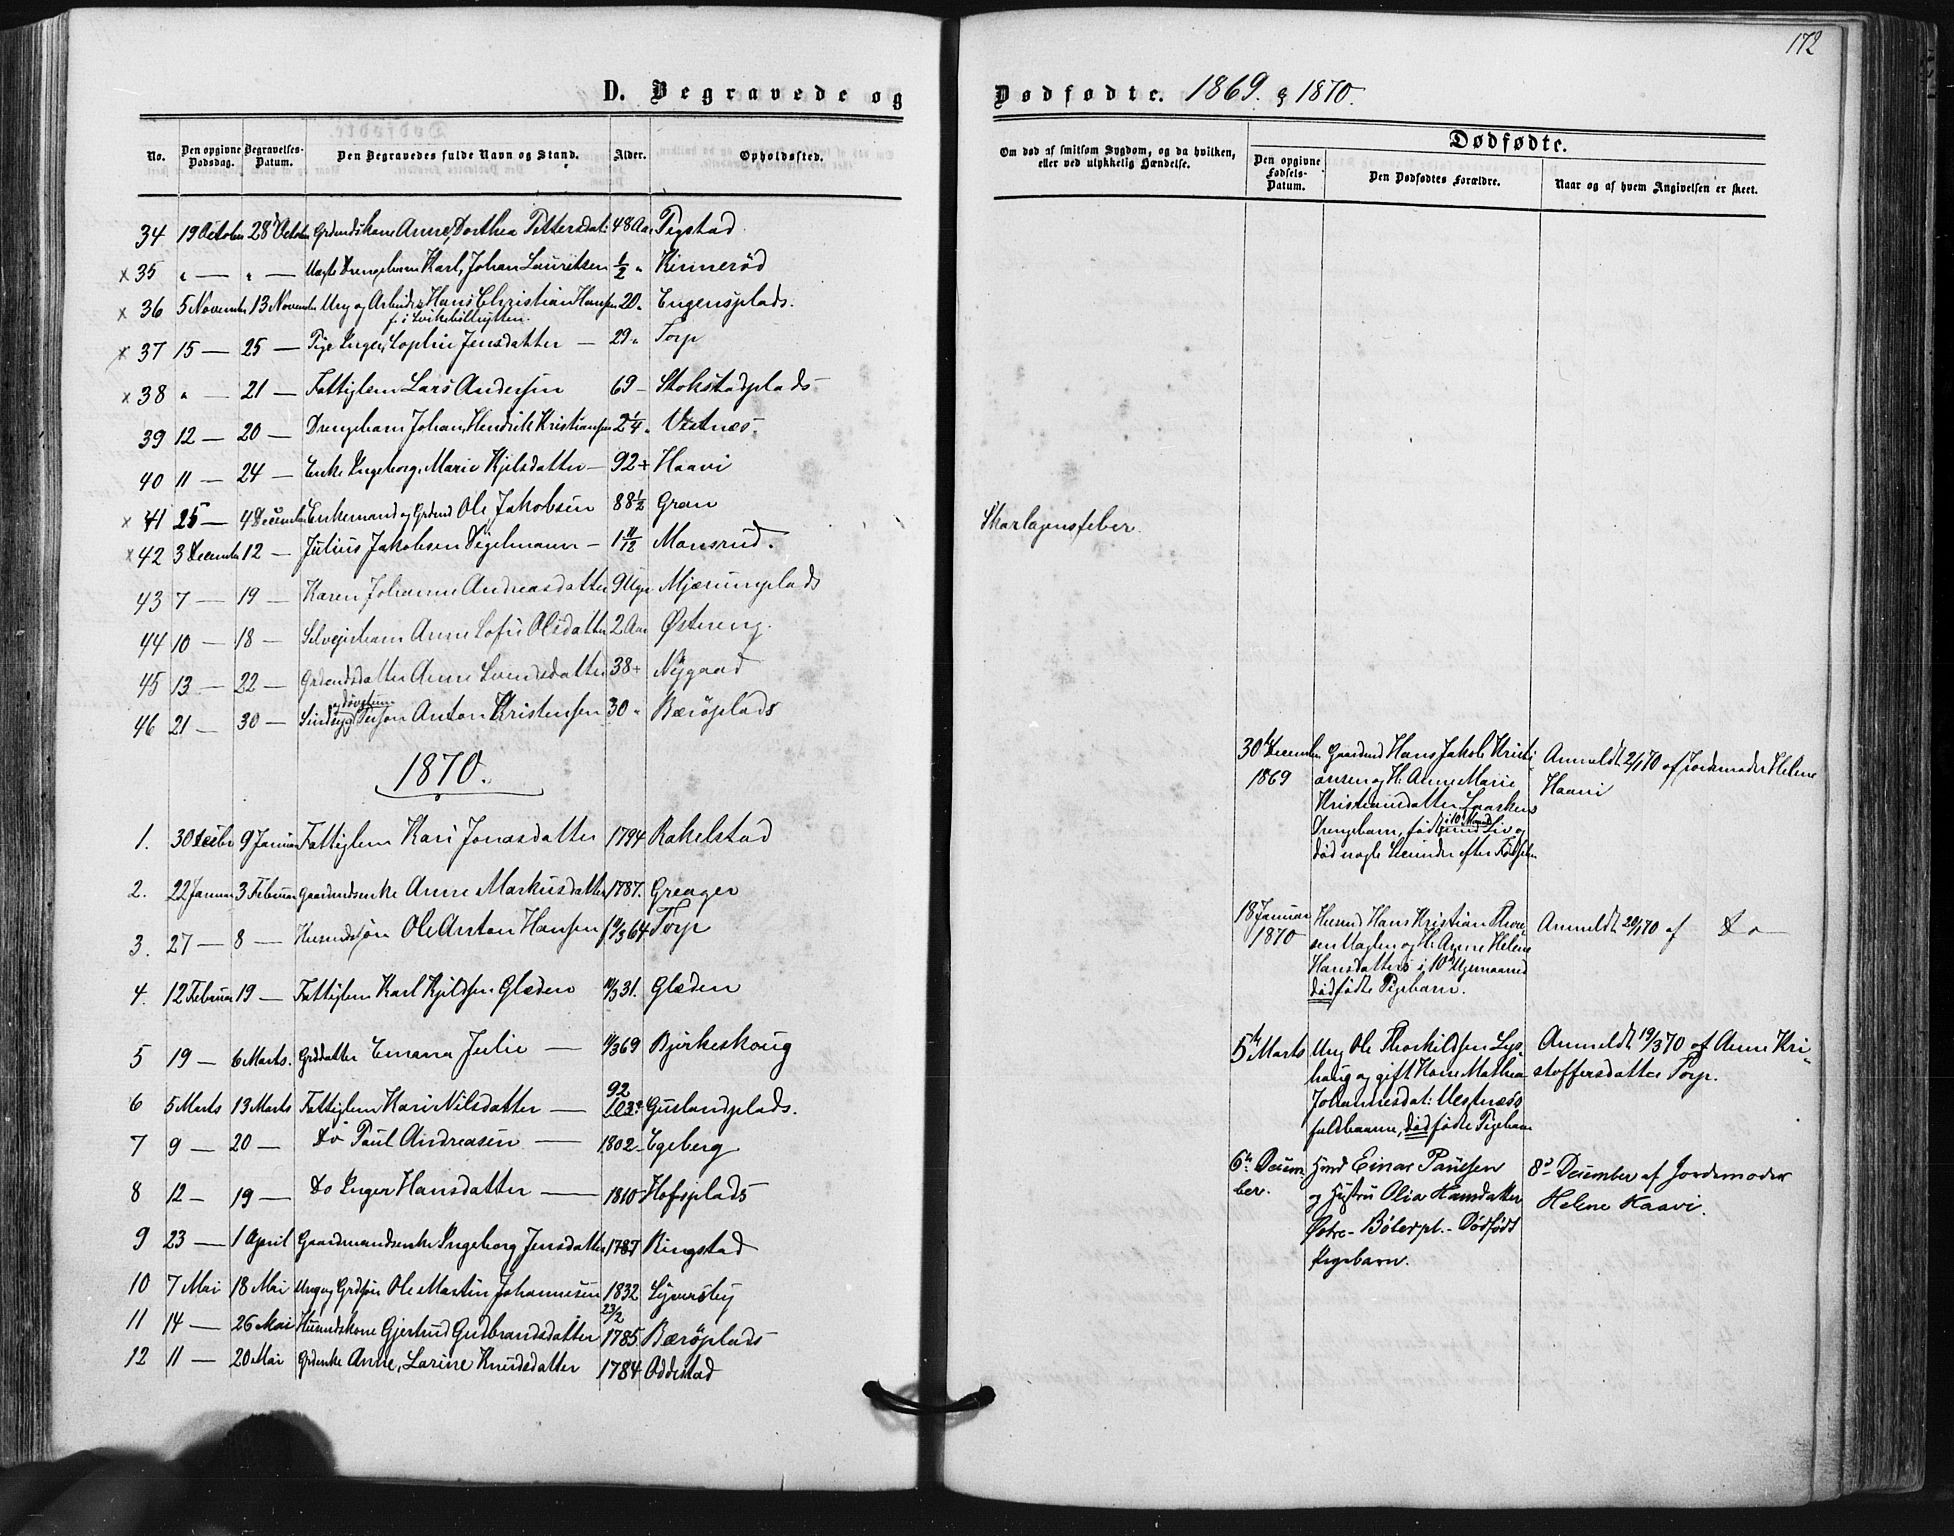 172
D. Begravede og Dødfødte. 1869. & 1870.
No. Den opgivne Dødsdag. Begravelses-Datum. Den Begravedes fulde Navn og Stand. Alder. Opholdssted.
Om død af smitsom Sygdom, og da hvilken, eller ved ulykkelig Hændelse.
Dødfødte.
Den opgivne Fødsels-Datum. Den Dødfødtes Forældre. Naar og af hvem Angivelsen er skeet.
34 19 October 28 October Grdmdskone Anne Dorthea Pettersdat: 48 Aar Pegstad
x 35 " — " — Drengebarn Karl Johan Lauritsen 1/2 " Kinnerød
x 36 5 November 13 November Ung og Arbeider Hans Christian Hansen 20 " Engensplads.
x 37 15 — 25 — Pige Inger Sophie Jensdatter — 29 " Torp
x 38 " — 21 — Fattiglem Lars Andersen 69 — Stokstadplads
39 12 — 20 — Drengebarn Johan Hendrik Kristiansen 2 1/4 " Vestnæs
40 11 — 24 — Enke Ingeborg Marie Kjelsdatter — 92 + Haavi
x 41 25 — 4 December Enkemand og Grdmd Ole Jakobsen 88 1/2 Gran
x 42 3 December 12 — Julius Jakobsen — 1 11/12 Monsrud. Skarlagensfeber.
43 7 — 19 — Karen Johanne Andreasdatter 9 Uger Mjærumplads
44 10 — 18 — Selveierbarn Anne Sofie Olsdatter 2 Aar Østeng.
45 13 — 22 — Grdmdsdatter Anne Svendsdatter 38 + Nygaard
og døvstum
46 21 — 30 — Sindsyg Person Anton Kristensen 30 " Bærøplads
1870.
1. 30 Decbr 9 Januar Fattiglem Kari Jonasdatter 1794 Rakelstad
2. 22 Januar 3 Februar Gaardmdsenke Anne Markusdatter 1787. Greager
3. 27 — 8 — Husmdssøn Ole Anton Hansen 64 Torp
4. 12 Februar 19 — Fattiglem Karl Kjeldsen Glæden 31. Glæden
5 19 — 6 Marts. Grddatter Emma Julie — 69 Bjørkeskoug
6 5 Marts 13 Marts Fattiglem Kari Nilsdatter — 92 Guslandplads.
7 9 — 20 — Do Paul Andreasen — 1802 Egeberg
8 12 — 19 — Do Inger Hansdatter — 1810 Hofsplads
9 23 — 1 April Gaardmandsenke Ingeborg Jensdatter 1787 Ringstad
10 7 Mai 18 Mai Ung og Grdsøn Ole Martin Johannesen 1832
11 14 — 26 Mai Husmdskone Gjertrud Gudbrandsdatter 23/2 1785 Bærøplads
12 11 — 20 Mai Grdenke Anne Larine Knudsdatter 1784 Oddestad
30te December 1869 Gaardmd Hans Jakob Kristi
ansen og H. Anne Marie
Kristiansdatter
Drengebarn, født med Liv og
død nogle Secunder efter Fødselen
Anmeldt 2/1 70 af Jordemoder Helene
Haavi
18 Januar 1870 Husmd Hans Kristian Thore
sen og H: Anne Helene
Hansdatters i 10de Ugemaaned
dødfødte Pigebarn.
Anmeldt 20/1 70 af Do —
5te Marts Ung Ole Thorkildsen Lys-
haug og gift Kone Mathea
Johannesdat: Vestnæs
fuldbaarne, dødfødte Pigebarn
Anmeldt 19/3 70 af Anne Kri-
stoffersdatter Torp.
6te Decem
ber. Hmd Einar Paulsen
og Hustru Olia Hansdatter
Østre-Bølerpl. - Dødfødt
Pigebarn.
8de December af Jordemoder
Helene Haavi.